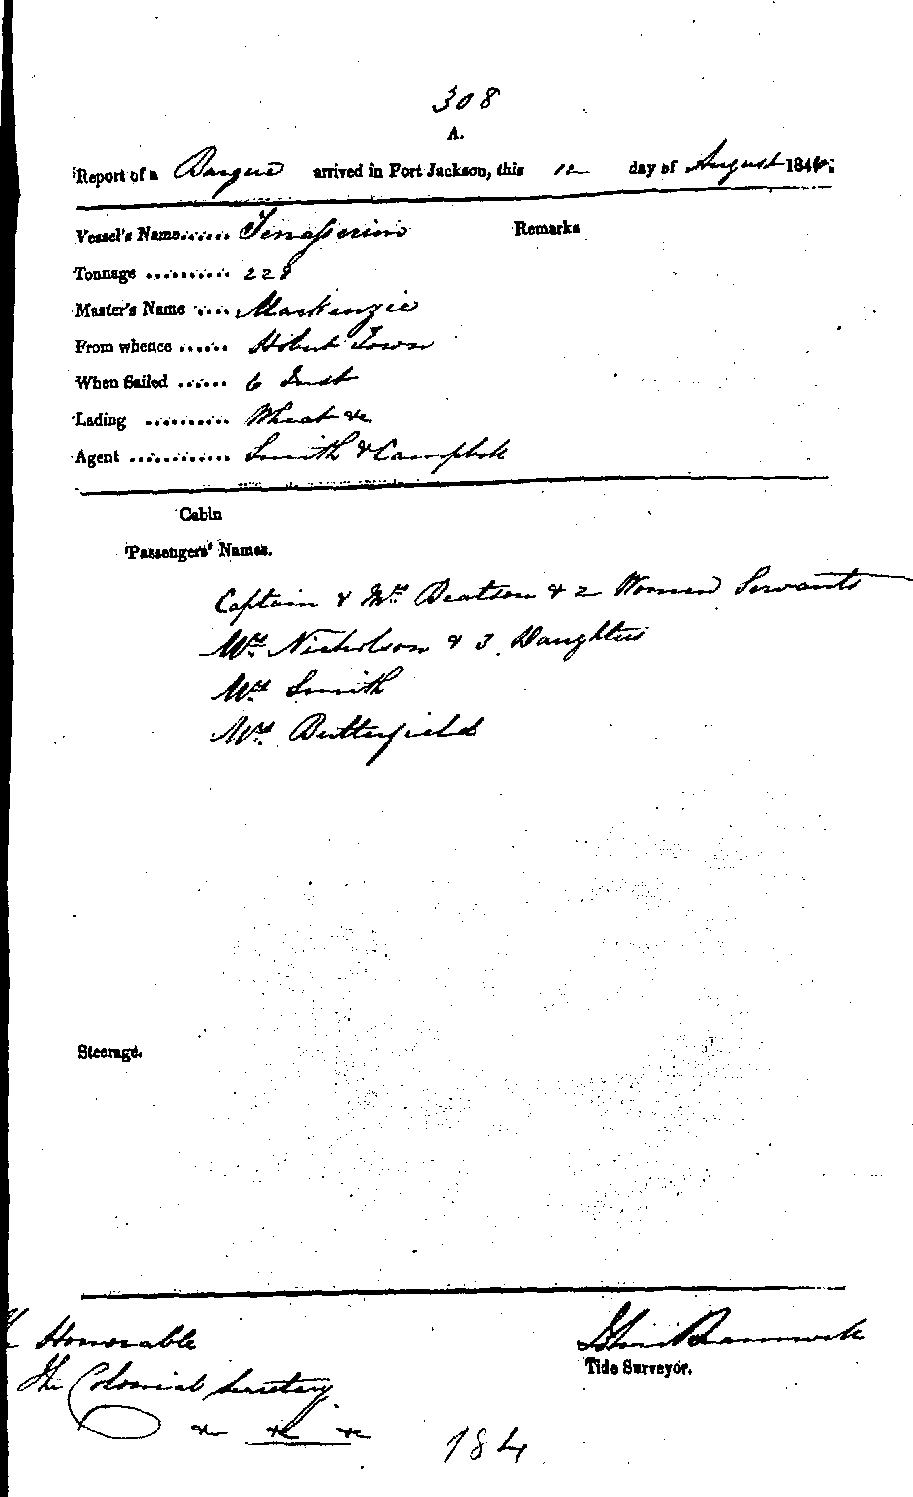 308
A.
Report of a Barque arrived in Port Jackson, this 12 day of August 1846;
Vessel's Name....... Tenasserim Remarks
Tonnage .......... 228
Master's Name ..... Mackenzie
From whence ...... Hobart Town
When Sailed ...... 6 Inst
Lading .......... Wheat &c
Agent ............ Smith & Campbell
Cabin
Passengers' Names.
Captain & Mrs Beatson & 2 Women Servants
Mrs Nicholson & 3 Daughters
Mrs Smith
Mrs Butterfield
Steerage.
Honorable
Tide Surveyor.
The Colonial Secretary
&c &c &c
184